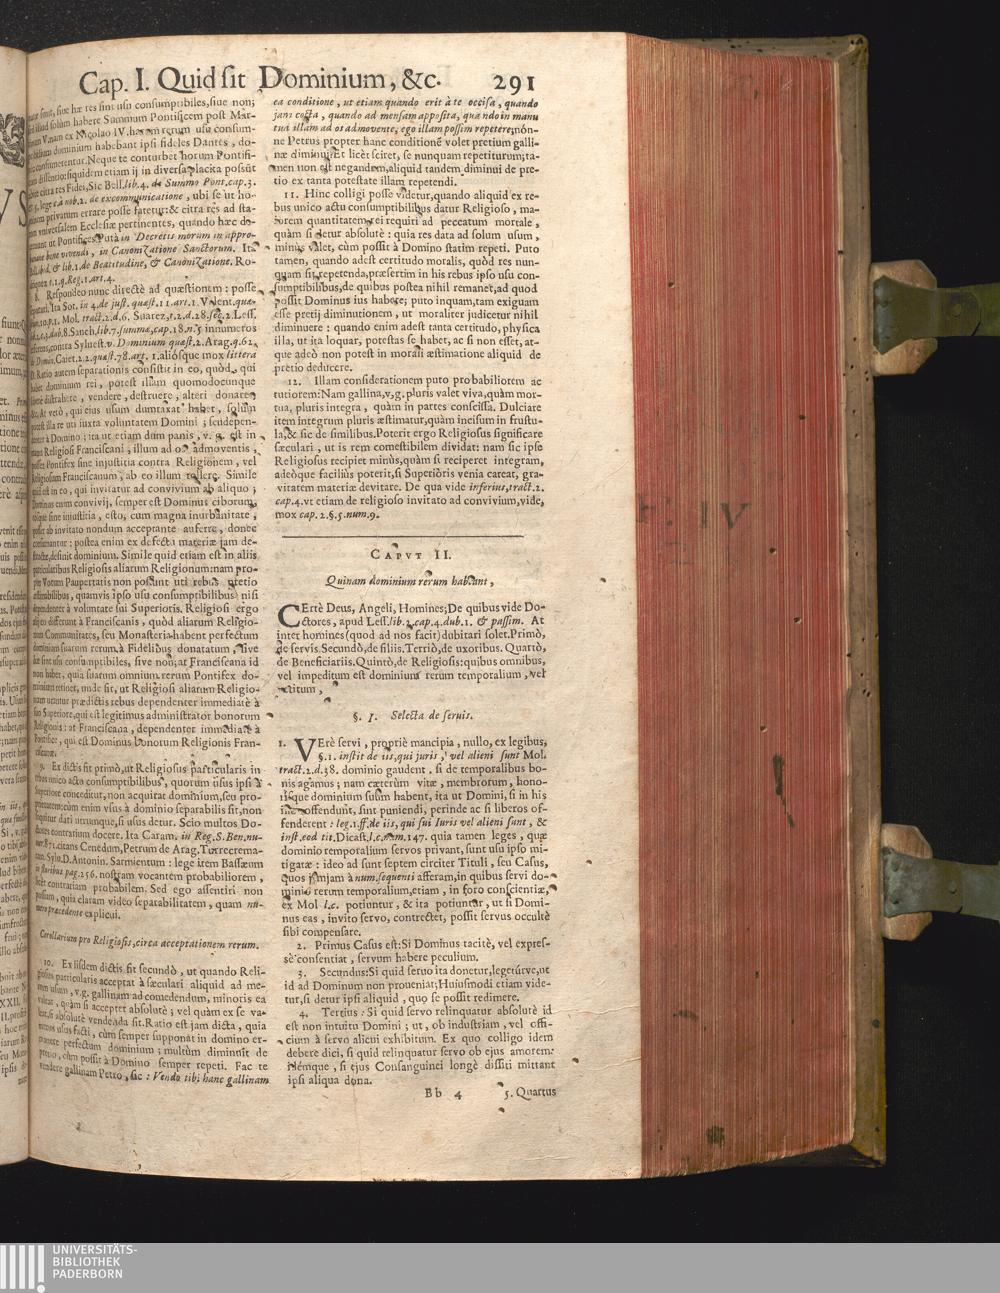 Cap. I. Quid sit Dominium, &c. 291
sive hæ res sint usu consumptibiles, sive non;
solùm habere Summum Pontificem post Mar-
ex Nicolao IV. harum rerum usu consum-
dominium habebant ipsi fideles Dantes, do-
consumerentur. Neque te conturbet horum Pontifi-
dissentio: siquidem etiam ij in diversa placita possũt
citra res Fidei, Sic Bell. lib. 4. de Summo Pont. cap. 3.
lege eã nob. 2. de excommunicatione, ubi se ut ho-
privatum errare posse fatetur: & citra res ad sta-
universalem Ecclesiæ pertinentes, quando hæc de-
ut Pontifices. Putà in Decretis morum in appro-
bene vivendi, in Canonizatione Sanctorum. Ita
& lib. 1. de Beatitudine, & Canonizatione. Ro-
t. 1. q. Reg. 1. art. 4.
8. Respondeo nunc directè ad quæstionem: posse
Ita Sot. in 4. de just. quæst. 11. art. 1. Valent. quæ-
Mol. tract. 2. d. 6. Suarez, t. 2. d. 28. sec. 2. Less.
dub. 8. Sanch. lib. 7. summæ, cap. 18. n. 5 innumeros
contra Sylvest. v. Dominium quæst. 2. Arag. q. 62.
Caiet. 2. 2. quæst. 78. art. 1. aliósque mox litterâ
D. Ratio autem separationis consistit in eo, quòd, qui
habet dominium rei, potest illam quomodocunque
distrahere, vendere, destruere, alteri donare
At verò, qui eius usum dumtaxat habet, solùm
illa re uti iuxta voluntatem Domini; seu depen-
à Domino; ita ut etiam dum panis, v. g. est in
manu Religiosi Franciscani, illum ad os admoventis,
posset Pontifex sine injustitia contra Religionem, vel
Religiosum Franciscanum, ab eo illum tollere. Simile
quid est in eo, qui invitatur ad convivium ab aliquo;
Dominus enim convivij, semper est Dominus ciborum,
sine iniustitia, esto, cum magna inurbanitate,
ab invitato nondum acceptante auferre, donec
consumantur: postea enim ex defectu materiæ jam de-
desinit dominium. Simile quid etiam est in aliis
particularibus Religiosis aliarum Religionum: nam pro-
Votum Paupertatis non possunt uti rebus pretio
æstimabilibus, quamvis ipso usu consumptibilibus nisi
dependenter à voluntate sui Superioris. Religiosi ergo
differunt à Franciscanis, quòd aliarum Religio-
num Communitates, seu Monasteria habent perfectum
dominium suarum rerum, à Fidelibus donatatum, sive
sint usu consumptibiles, sive non; at Franciscana id
non habet, quia suarum omnium rerum Pontifex do-
minium retinet, unde fit, ut Religiosi aliarum Religio-
num utantur prædictis rebus dependenter immediatè à
suo Superiore, qui est legitimus administrator bonorum
Religionis: at Franciscana, dependenter immediatè à
Pontifice, qui est Dominus bonorum Religionis Fran-
ciscanæ.
9. Ex dictis fit primò, ut Religiosus particularis in
rebus unico actu consumptibilibus, quorum usus ipsi à
Superiore conceditur, non acquirat dominium, seu pro-
prietatem: cùm enim usus à dominio separabilis sit, non
sequitur dari utrumque, si usus detur. Scio multos Do-
ctores contrarium docere. Ita Caram. in Reg. S. Ben. nu-
mer. 871. citans Cenedum, Petrum de Arag. Turrecrema-
tam, Sylv. D. Antonin. Sarmientum: lege item Bassæum
pag. 256. nostram vocantem probabiliorem,
licèt contrariam probabilem. Sed ego assentiri non
possum, quia claram video separabilitatem, quam nu-
mero præcedente explicui.
Corollarium pro Religiosis, circa acceptationem rerum.
10. Ex iisdem dictis fit secundò, ut quando Reli-
giosus particularis acceptat à sæculari aliquid ad me-
rum usum, v. g. gallinam ad comedendum, minoris ea
valeat, quàm si acceptet absolutè; vel quàm ex se va-
leat, si absolutè vendenda sit. Ratio est jam dicta, quia
usus facti, cùm semper supponat in domino er-
perfectum dominium; multùm diminuit de
pretio, cùm possit à Domino semper repeti. Fac te
vendere gallinam Petro, sic: Vendo tibi hanc gallinam
ea conditione, ut etiam quando erit à te occisa, quando
jam cocta, quando ad mensam apposita, quando in manu
tua illam ad os admovente, ego illam possim repetere; nón-
ne Petrus propter hanc conditionẽ volet pretium galli-
næ diminui? Et licèt sciret, se nunquam repetiturum; ta-
men non est negandem, aliquid tandem diminui de pre-
tio ex tanta potestate illam repetendi.
11. Hinc colligi posse videtur, quando aliquid ex re-
bus unico actu consumptibilibus datur Religioso, ma-
jorem quantitatem rei requiri ad peccatum mortale,
quàm si detur absolutè: quia res data ad solum usum,
minus valet, cùm possit à Domino statim repeti. Puto
tamen, quando adest certitudo moralis, quòd res nun-
quam sit repetenda, præsertim in his rebus ipso usu con-
sumptibilibus, de quibus postea nihil remanet, ad quod
possit Dominus ius habere; puto inquam, tam exiguam
esse pretij diminutionem, ut moraliter judicetur nihil
diminuere: quando enim adest tanta certitudo, physica
illa, ut ita loquar, potestas se habet, ac si non esset, at-
que adeò non potest in morali æstimatione aliquid de
pretio deducere.
12. Illam considerationem puto probabiliorem ac
tutiorem: Nam gallina, v. g. pluris valet viva, quàm mor-
tua, pluris integra, quàm in partes conscissa. Dulciare
item integrum pluris æstimatur, quàm incisum in frustu-
la, & sic de similibus. Poterit ergo Religiosus significare
sæculari, ut is rem comestibilem dividat: nam sic ipse
Religiosus recipiet minùs, quàm si reciperet integram,
adeòque faciliùs poterit, si Superioris venia careat, gra-
vitatem materiæ devitare. De qua vide inferius, tract. 2.
cap. 4. ut etiam de religioso invitato ad convivium, vide,
mox cap. 2. §. 5. num. 9.
CAPVT II.
Quinam dominium rerum habeant,
CErtè Deus, Angeli, Homines; De quibus vide Do-
ctores, apud Less. lib. 2. cap. 4. dub. 1. & passim. At
inter homines (quod ad nos facit) dubitari solet. Primò,
de servis. Secundò, de filiis. Terriò, de uxoribus. Quartò,
de Beneficiariis. Quintò, de Religiosis: quibus omnibus,
vel impeditum est dominium rerum temporalium, vel
§. I. Selecta de servis.
1. VErè servi, propriè mancipia, nullo, ex legibus,
§. 1. instit de iis, qui juris, vel alieni sunt Mol.
tract. 2. d. 38. dominio gaudent, si de temporalibus bo-
nis agamus; nam cæterùm vitæ, membrorum, hono-
risque dominium suum habent, ita ut Domini, si in his
offendunt, sint puniendi, perinde ac si liberos of-
fenderent: leg. 1. ff. de iis, qui sui Iuris vel alieni sunt, &
inst. eod tit. Dicast. l. c. num. 147. quia tamen leges, quæ
dominio temporalium servos privant, sunt usu ipso mi-
tigatæ: ideo ad sunt septem circiter Tituli, seu Casus,
quos jamjam à num. sequenti afferam, in quibus servi do-
minio rerum temporalium, etiam, in foro conscientiæ,
ex Mol l. c. potiuntur, & ita potiuntur, ut si Domi-
nus eas, invito servo, contrectet, possit servus occultè
sibi compensare.
2. Primus Casus est: Si Dominus tacitè, vel expres-
sè consentiat, servum habere peculium.
3. Secundus: Si quid servo ita donetur, legetúrve, ut
id ad Dominum non proveniat; Huiusmodi etiam vide-
tur, si detur ipsi aliquid, quo se possit redimere.
4. Tertius: Si quid servo relinquatur absolutè id
est non intuitu Domini; ut, ob industriam, vel offi-
cium à servo alicui exhibitum. Ex quo colligo idem
debere dici, si quid relinquatur servo ob ejus amorem:
Némque, si ejus Consanguinei longè dissiti mittant
ipsi aliqua dona.
Bb 4 5. Quartus
UNIVERSITÄTS-
BIBLIOTHEK
PADERBORN